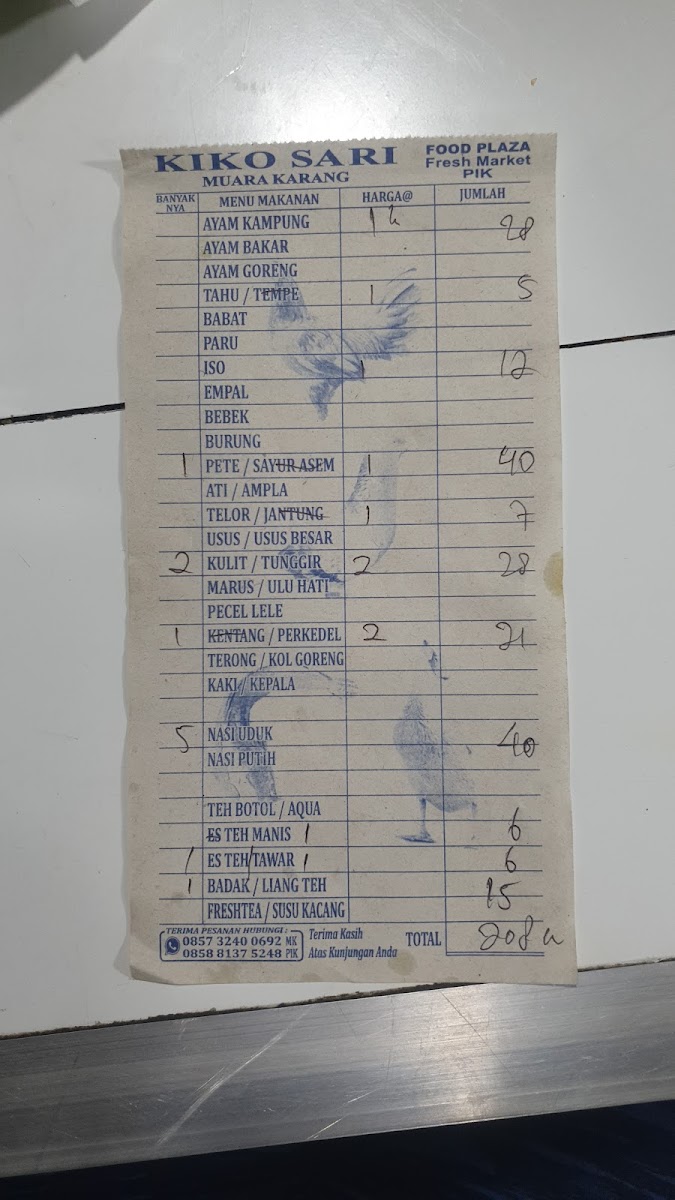 KIKO SARI
MUARA KARANG
FOOD PLAZA
Fresh Market
PIK
BANYAK NYA MENU MAKANAN HARGA@ JUMLAH
AYAM KAMPUNG 1 28
AYAM BAKAR
AYAM GORENG
TAHU / TEMPE 1 5
BABAT
PARU
ISO 1 12
EMPAL
BEBEK
BURUNG
1 PETE / SAYUR ASEM 1 40
ATI / AMPLA
TELOR / JANTUNG 1 7
USUS / USUS BESAR
2 KULIT / TUNGGIR 2 28
MARUS / ULU HATI
PECEL LELE
1 KENTANG / PERKEDEL 2 21
TERONG / KOL GORENG
KAKI / KEPALA
5 NASI UDUK 40
NASI PUTIH
TEH BOTOL / AQUA
ES TEH MANIS 1 6
1 ES TEH TAWAR 1 6
1 BADAK / LIANG TEH 15
FRESHTEA / SUSU KACANG
TERIMA PESANAN HUBUNGI :
0857 3240 0692 MK
0858 8137 5248 PIK
Terima Kasih
Atas Kunjungan Anda
TOTAL 208